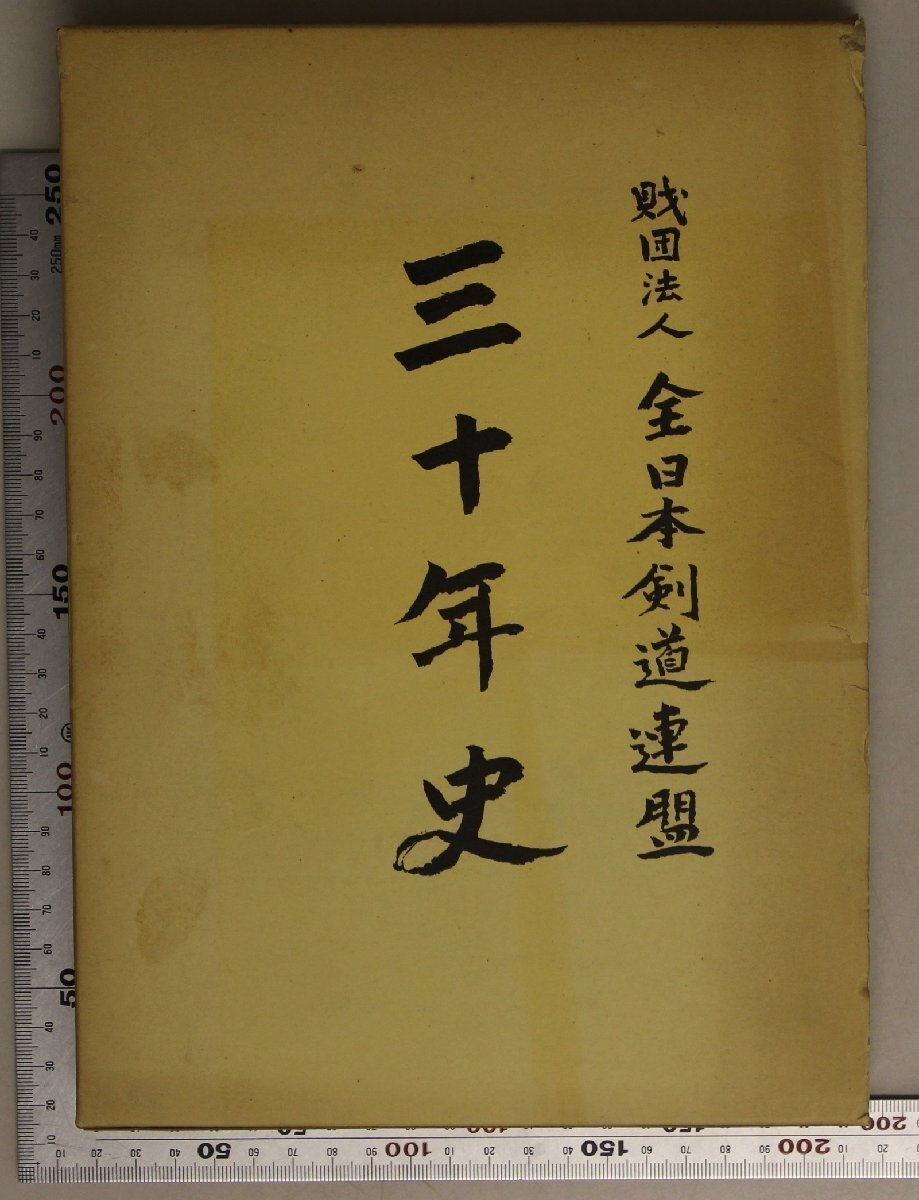 財団法人 全日本剣道連盟
三十年史
250
40
250mm
30
20
10
200
90
80
70
60
150
40
30
20
10
100
90
80
70
60
50
40
30
20
10
10 20 30 40 50 60 70 80 90 100 10 20 30 40 150 60 70 80 90 200 10 20
50 100 150 200